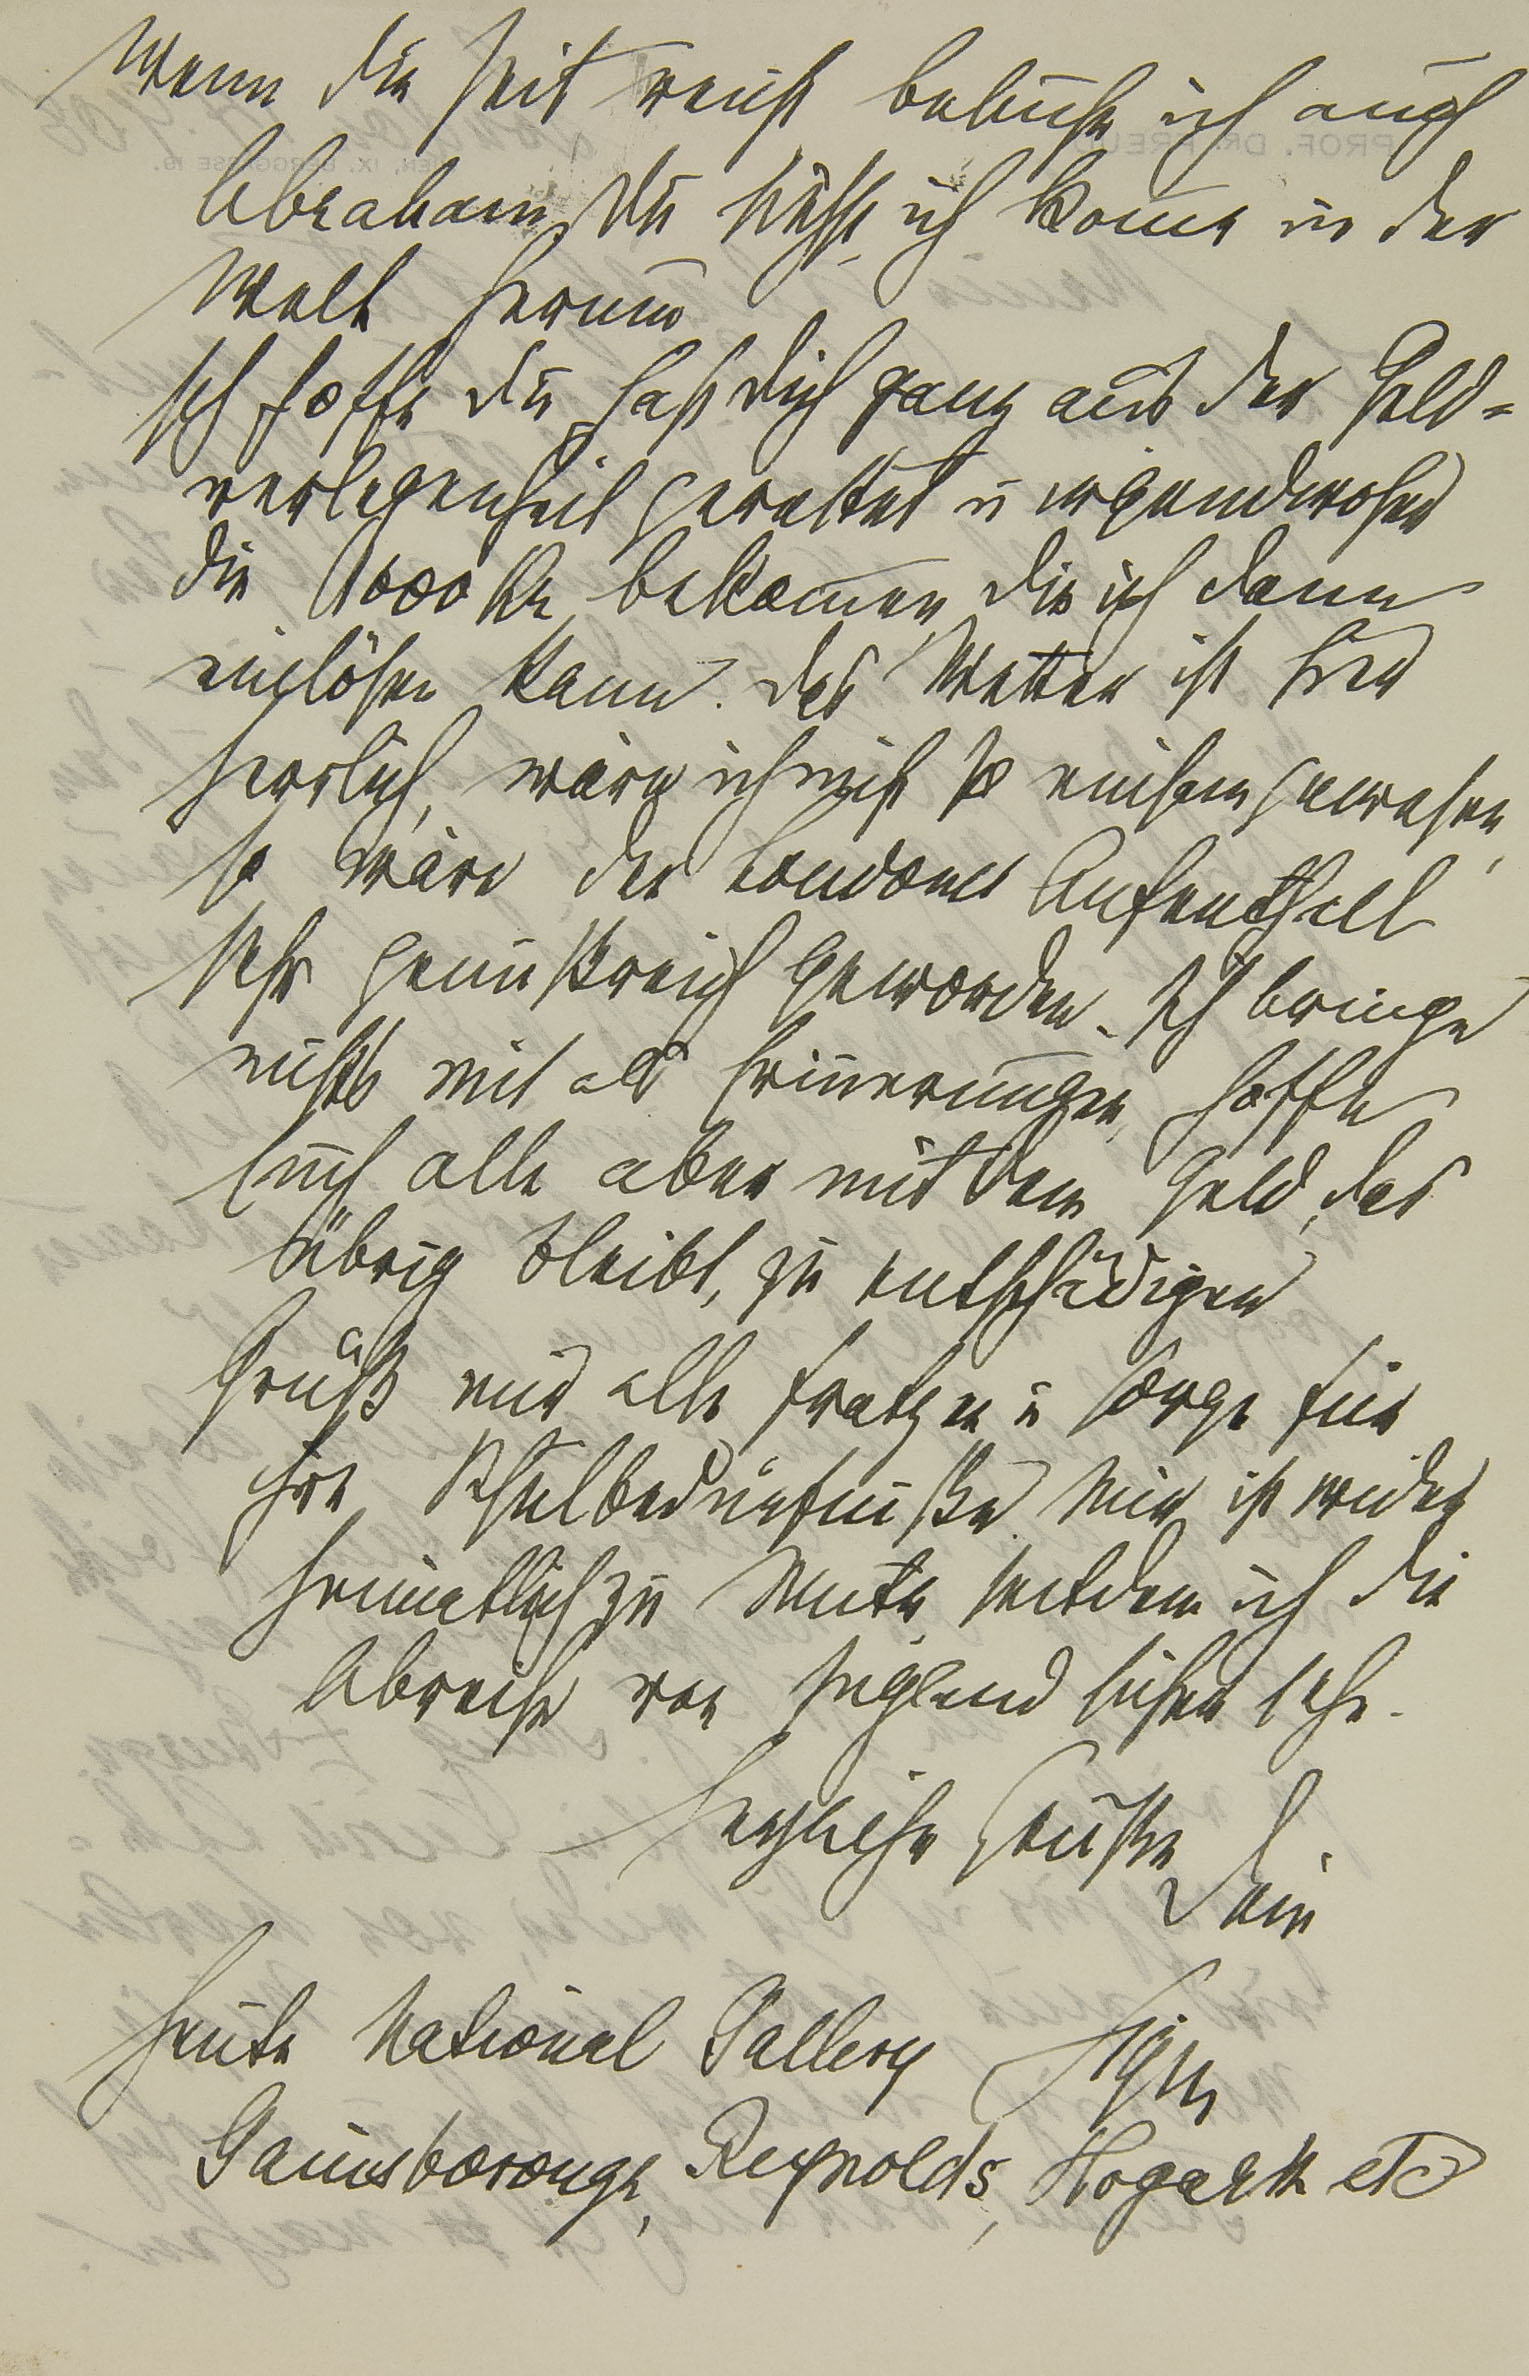 Wenn die Zeit reicht besuche ich auch
Abraham. Du siehst, ich kome in der
Welt herum
Ich hoffe du hast dich ganz aus der Geld=
verlegenheit gerettet u irgendwoher
die 1000 Kr bekomen, die ich dann
einlösen kann. Das Wetter ist hier
herrlich, wäre ich nicht so einsam gewesen,
so wäre der Londoner Aufenthalt
sehr genußreich geworden. Ich bringe
nichts mit als Erinnerungen, hoffe
Euch alle aber mit dem Geld, das
übrig bleibt, zu entschädigen
Grüß mir alle Fratzen u sorge für
ihre Schulbedürfnisse. Mir ist wieder
heimatlich zu Mute, seitdem ich die
Abreise von England sicher sehe.
Herzliche Grüße
Dein
Heute National Gallery Sigm
Gainsborough, Reynolds, Hogarth etc